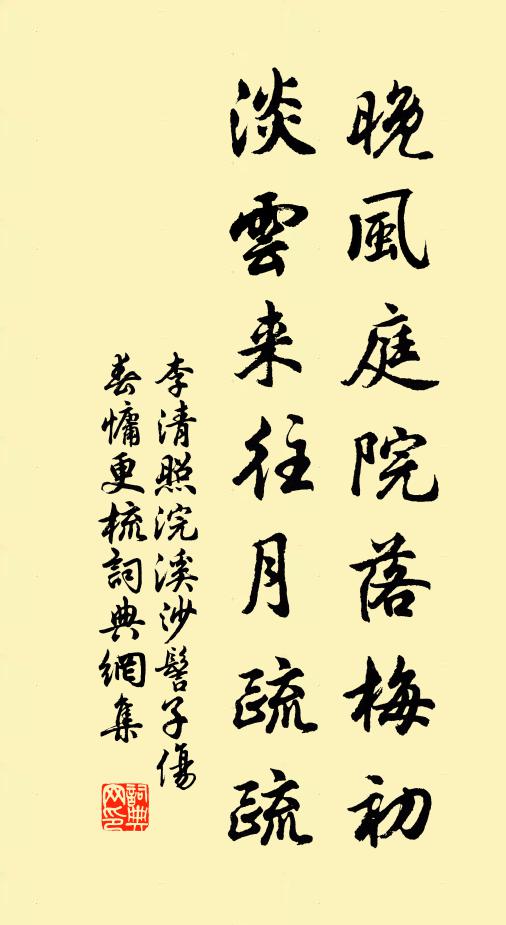 晚風庭院落梅初
淡雲来往月疏疏
李清照浣溪沙髻子傷
春慵更梳詞典網集
詞典网印